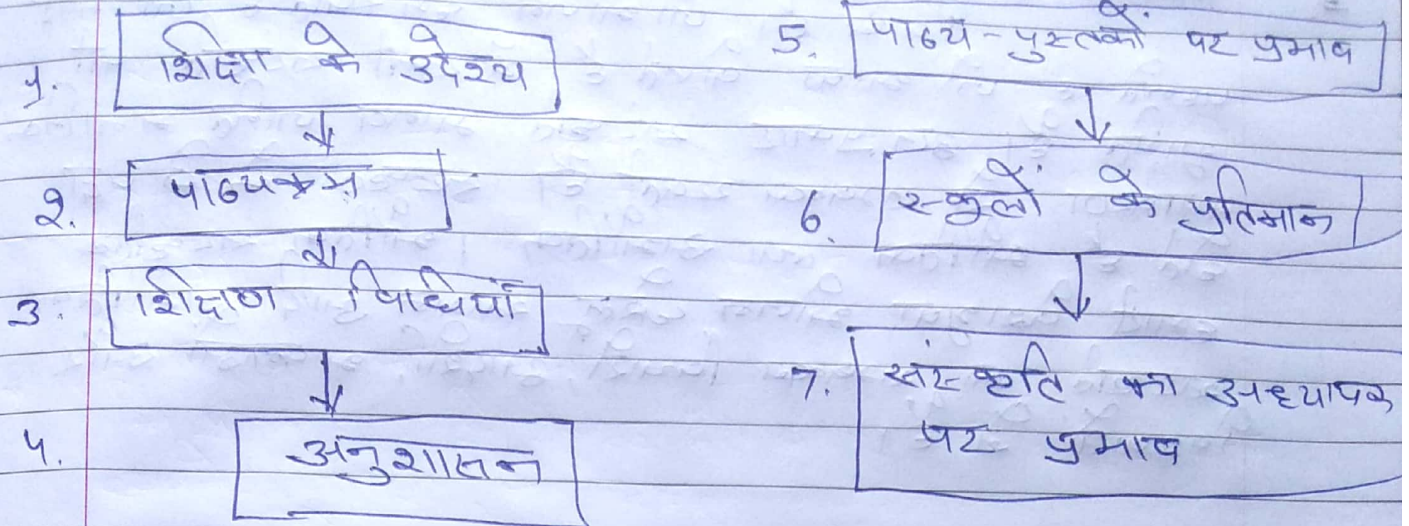 1. शिक्षा के उद्देश्य
2. पाठ्यक्रम
3. शिक्षण विधियाँ
4. अनुशासन
5. पाठ्य-पुस्तकों पर प्रभाव
6. स्कूलों के प्रतिमान
7. संस्कृति का अध्यापक
पर प्रभाव